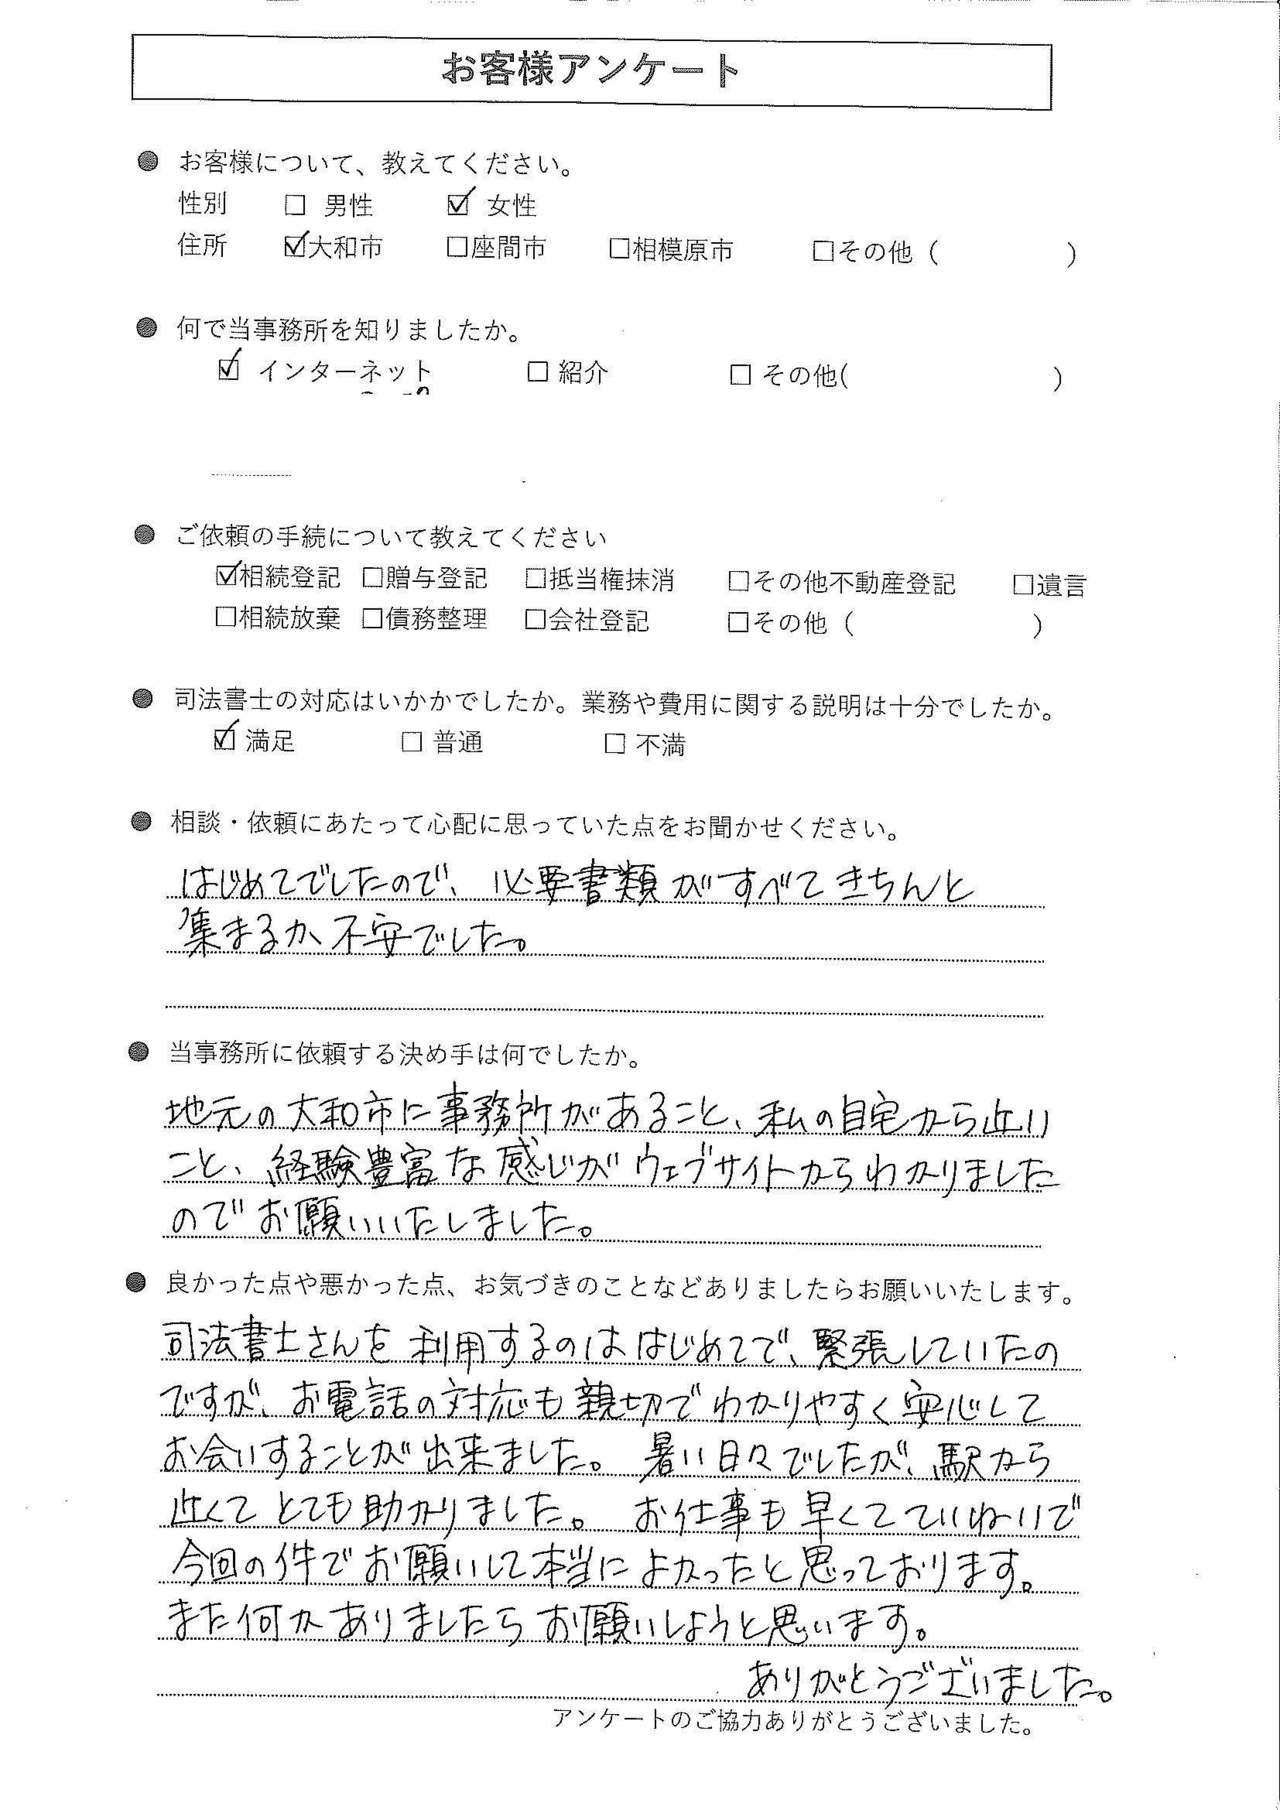 お客様アンケート
● お客様について、教えてください。
性別 □ 男性 ☑ 女性
住所 ☑大和市 □座間市 □相模原市 □その他 ( )
● 何で当事務所を知りましたか。
☑ インターネット □ 紹介 □ その他( )
● ご依頼の手続について教えてください
☑相続登記 □贈与登記 □抵当権抹消 □その他不動産登記 □遺言
□相続放棄 □債務整理 □会社登記 □その他 ( )
● 司法書士の対応はいかかでしたか。業務や費用に関する説明は十分でしたか。
☑ 満足 □ 普通 □ 不満
● 相談・依頼にあたって心配に思っていた点をお聞かせください。
はじめてでしたので、必要書類がすべてきちんと
集まるか、不安でした。
● 当事務所に依頼する決め手は何でしたか。
地元の大和市に事務所があること、私の自宅から近い
こと、経験豊富な感じがウェブサイトからわかりました
のでお願いいたしました。
● 良かった点や悪かった点、お気づきのことなどありましたらお願いいたします。
司法書士さんを利用するのははじめてで、緊張していたの
ですが、お電話の対応も親切でわかりやすく安心して
お会いすることが出来ました。暑い日々でしたが、駅から
近くてとても助かりました。お仕事も早くてていねいで
今回の件でお願いして本当によかったと思っております。
また何かありましたらお願いしようと思います。
ありがとうございました。
アンケートのご協力ありがとうございました。